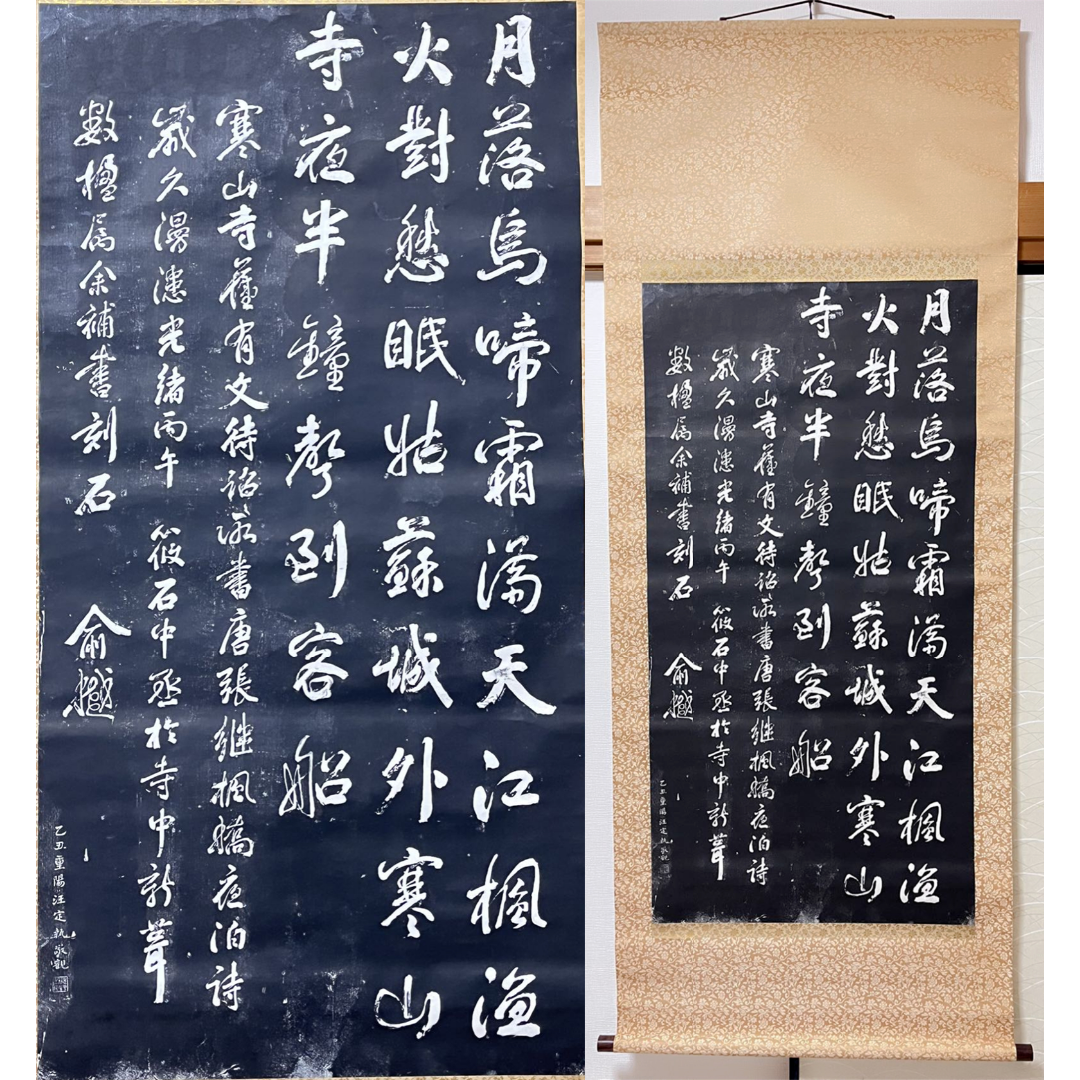 月落烏啼霜満天江楓漁
火對愁眠姑蘇城外寒山
寺夜半鐘聲到客船
寒山寺舊有文待詔所書唐張継楓橋夜泊詩
歲久漫漶光緒丙午 筱石中丞於寺中新葺
數楹属余補書刻石
俞樾
乙丑重陽汪定執敬觀
月落烏啼霜満天江楓漁
火對愁眠姑蘇城外寒山
寺夜半鐘聲到客船
寒山寺舊有文待詔所書唐張継楓橋夜泊詩
歲久漫漶光緒丙午 筱石中丞於寺中新葺
數楹属余補書刻石
俞樾
乙丑重陽汪定執敬觀